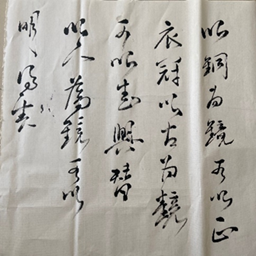 以銅為鏡可以正
衣冠以古為鏡
可以知興替
以人為鏡可以
明得失